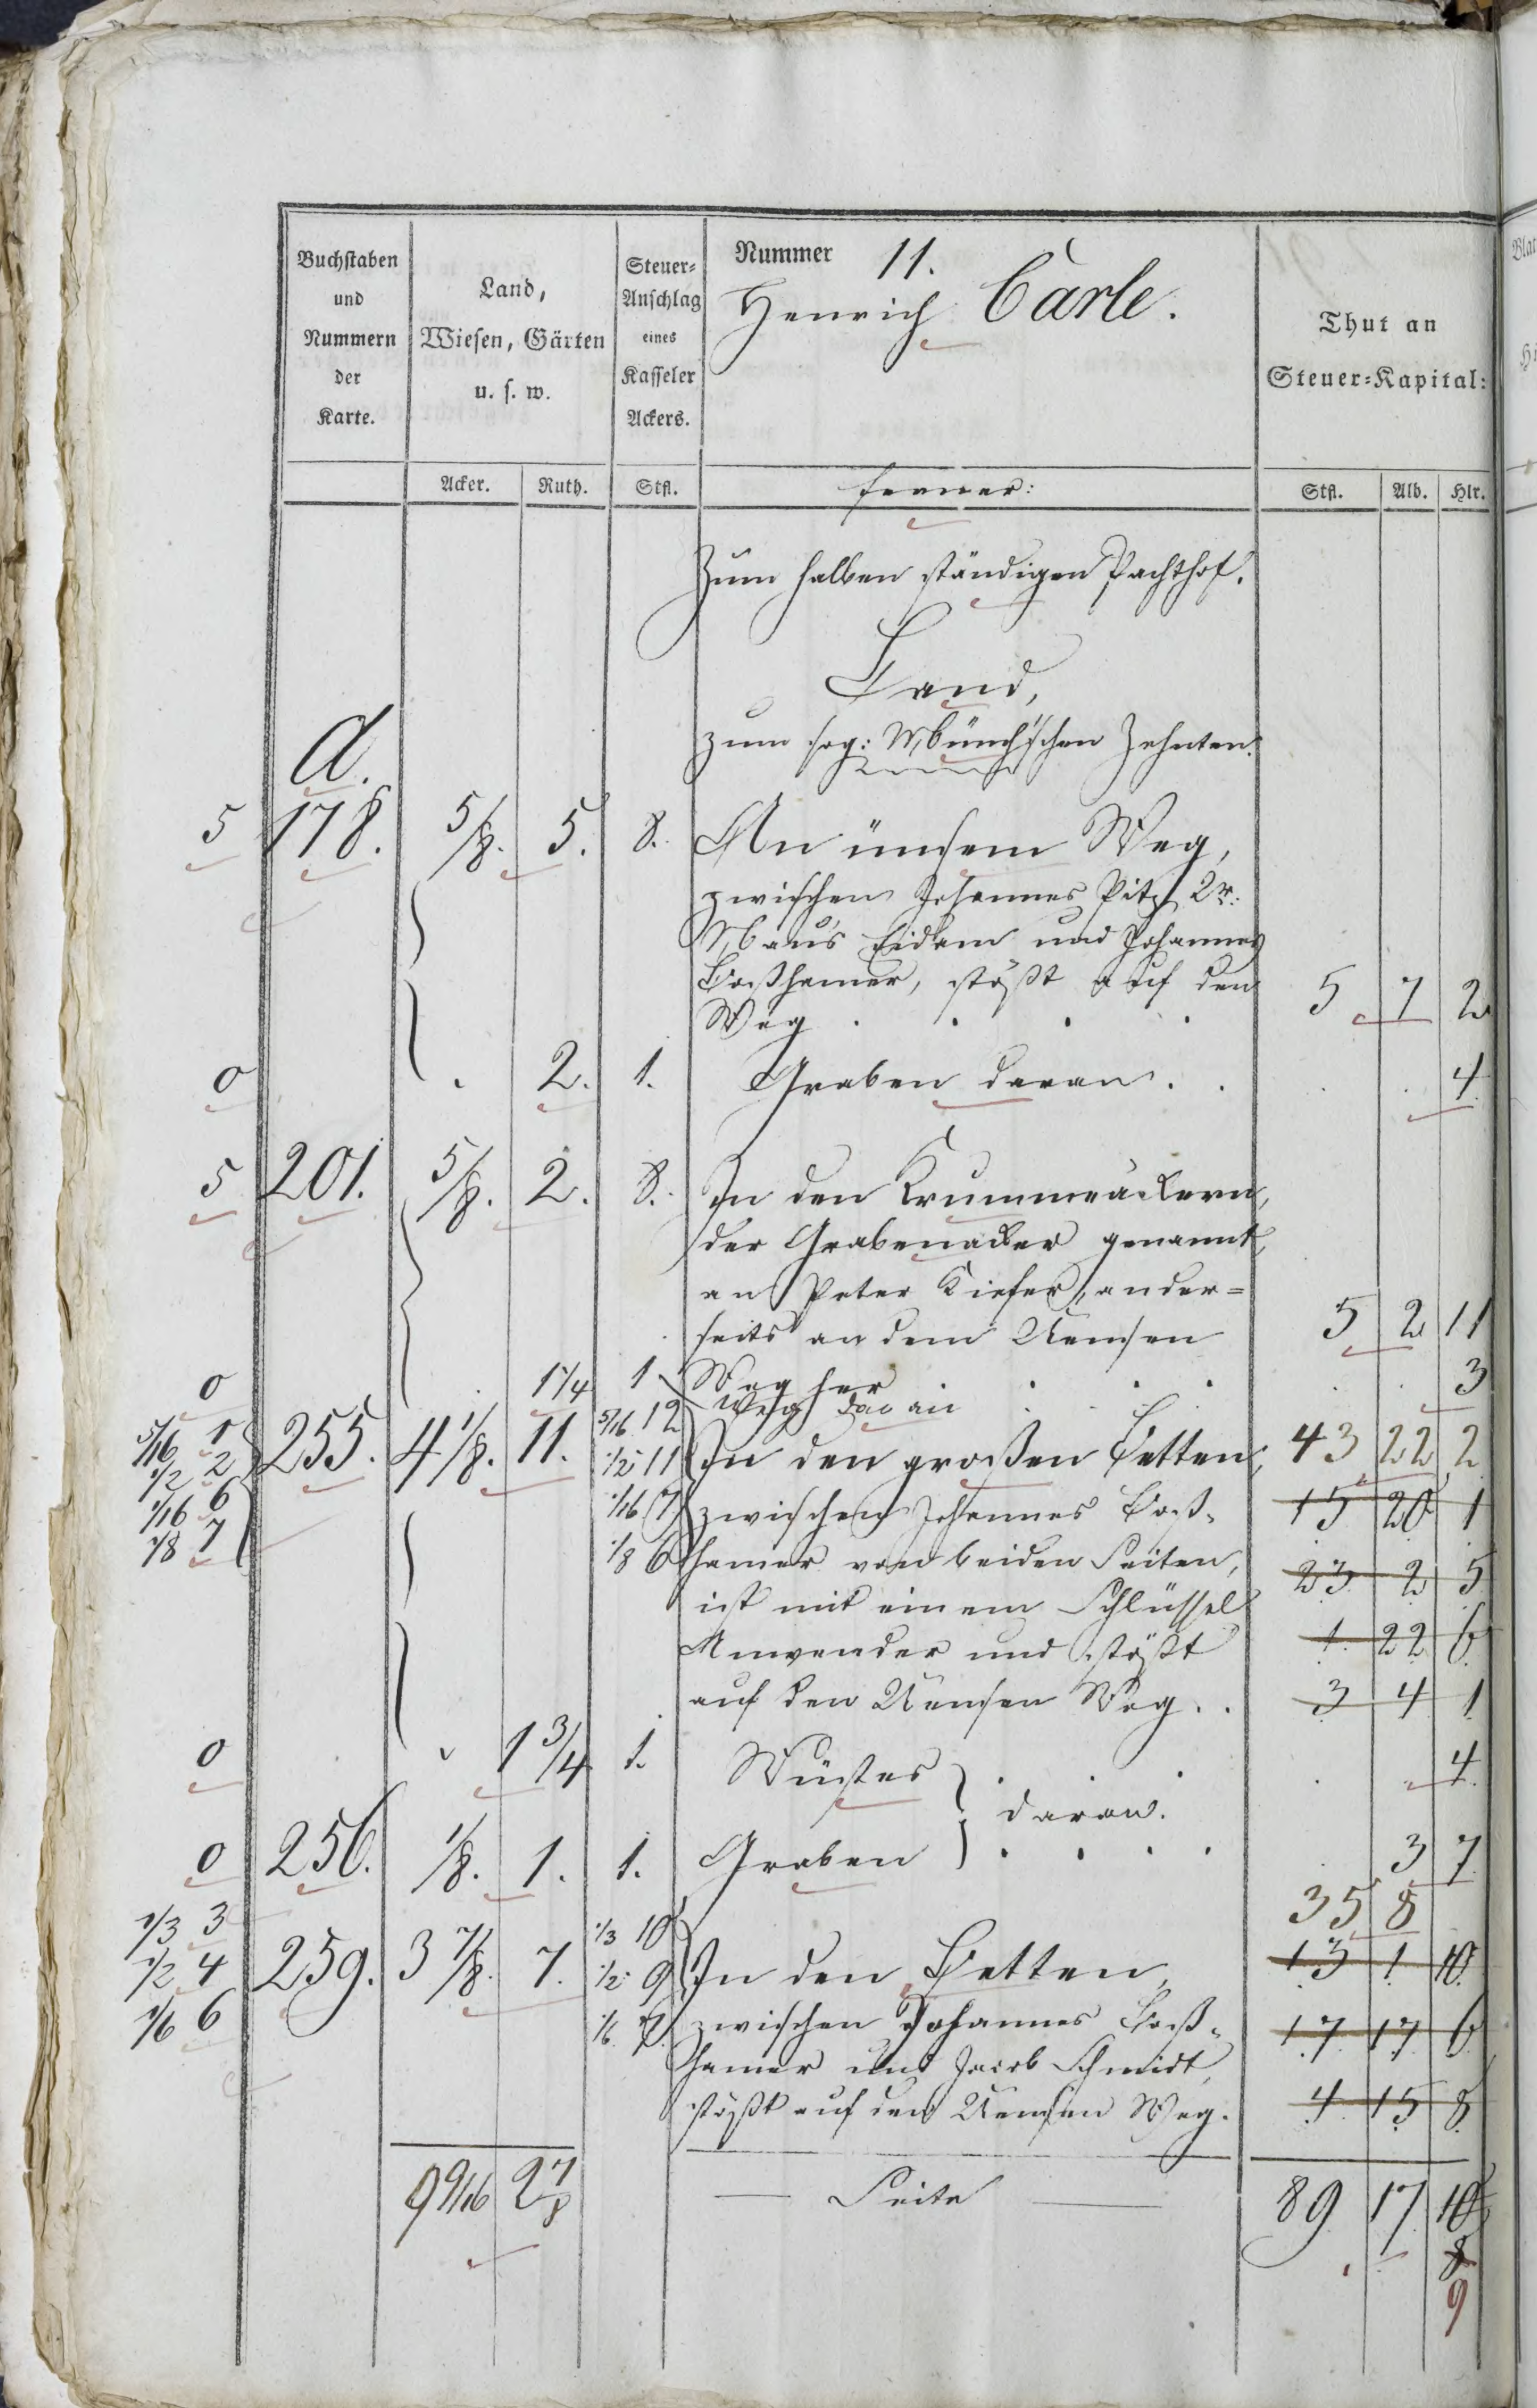 Buchstaben und Nummern der Karte.
Land, Wiesen, Gärten u. s. w.
Steuer-Anschlag eines Kasseler Ackers.
Nummer 11.
Henrich Carle.
Thut an Steuer-Kapital:
Acker. Ruth. Stfl. ferner: Stfl. Alb. Hlr.
Zum halben ständigen Pachthof.
Land,
zum sog: Münch'schen Zehnten.
A.
5 178. 5/8. 5. 8. An ümsem Weg,
zwischen Johannes Pitz 2r.
Maus Eidam und Johannes
Boßhamer, stößt auf den
Weg . . . . 5 7 2
0 . 2. 1. Graben daran . . . . 4
5 201. 5/8. 2. 8. In den Krummeäckern,
der Grabenacker genannt,
an Peter Kiefer, ander=
seits an dem Uemsen 5 2 11
Weg her . . .
0 1 1/4 1 Weg daran . . 3
5/16 1 255. 4 1/8. 11. 5/16 12 In den großen Betten, 43 22 2
1/2 2 1/2 11
1/16 6 1/16 7 zwischen Johannes Boß= 15 20 1
1/8 7 1/8 6 hamer von beiden Seiten, 23 2 5
ist mit einem Schlüssel
Anwender und stößt 1 22 6
auf den Uemsen Weg . . 3 4 1
0 1 3/4 1. Wüstes . . . 4
daran.
0 256. 1/8. 1. 1. Graben . . . . 3 7
35 8
1/3 3 1/3 10
1/2 4 259. 3 7/8. 7. 1/2 9 In den Betten, 13 1 10
1/6 6 1/6 7 zwischen Johannes Boß= 17 17 6
hamer und Jacob Schmidt,
stößt auf den Uemsen Weg. 4 15 8
9 9/16 Seite 89 17 10
8
9